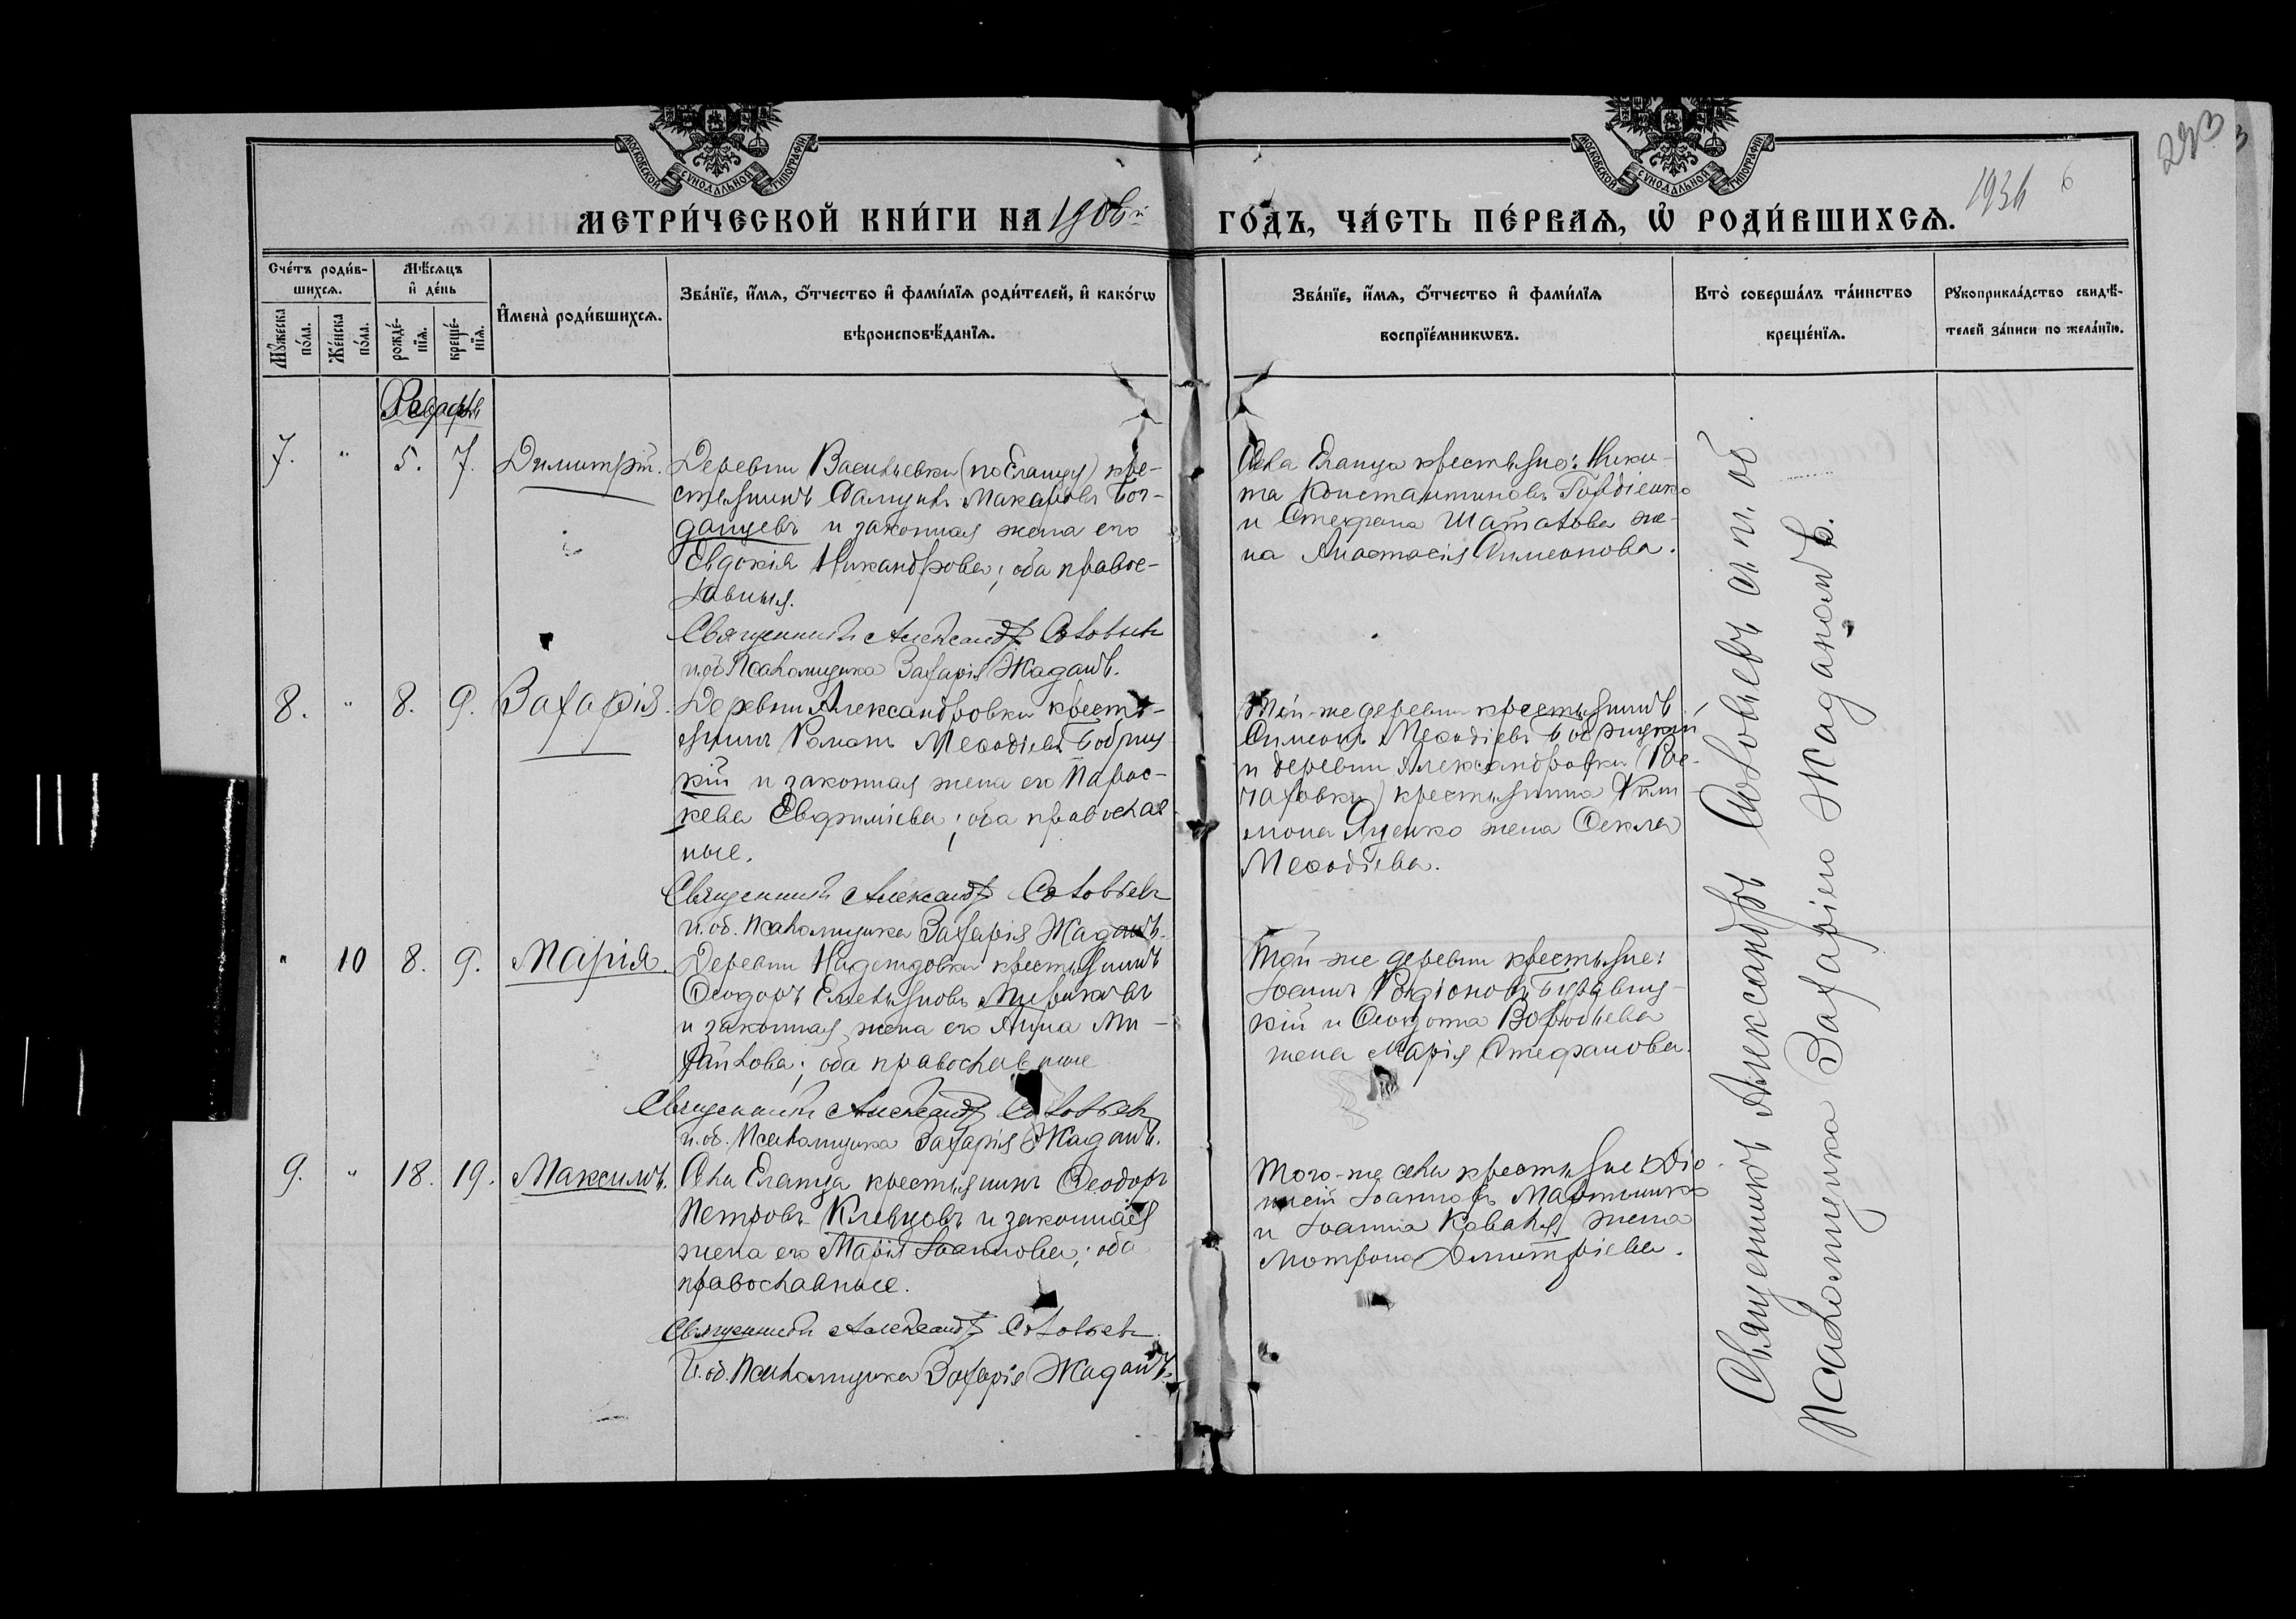 МОСКОВСКОЙ СѴНОДАЛЬНОЙ ТИПОГРАФІИ
МОСКОВСКОЙ СѴНОДАЛЬНОЙ ТИПОГРАФІИ
293
1936 6
МЕТРИ́ЧЕСКОЙ КНИ́ГИ НА 1906й ГО́ДЪ, ЧА́СТЬ ПЕ́РВАѦ, Ѡ҆ РОДИ́ВШИХСѦ.
Сче́тъ роди́в-
шихсѧ.
Мꙋ́жеска по́ла.
Же́нска по́ла.
Мѣ́сѧцъ
и҆ де́нь
рожде́-
нїѧ.
креще́-
нїѧ.
И҆мена̀ роди́вшихсѧ.
Зва́нїе, и҆́мѧ, ѻ҆́тчество и҆ фами́лїѧ роди́телей, и҆ како́гѡ
вѣроисповѣ́данїѧ.
Зва́нїе, и҆́мѧ, ѻ҆́тчество и҆ фами́лїѧ
воспрїе́мникѡвъ.
Кто̀ соверша́лъ та́инство
креще́нїѧ.
Рꙋкоприкла́дство свидѣ́-
телей за́писи по жела́нїю.
Февраль
7. " 5. 7. Димитрій.
Деревни Васильевки (по Еланцу) кре-
стьянинъ Макаровъ Бог-
данцевъ и законная жена его
Евдокія Никандрова; оба правос-
лавныя.
Священникъ Александръ Соловьевъ
и.об. Псаломщика Захарія Жаданъ.
Села Еланца крестьяне: Ники-
та Константиновъ Гордіенко
и Стефана Шаталова же-
на Анастасія Симеонова.
8. " 8. 9. Захарія.
Деревни Александровки кресть-
янинъ Романъ Меѳодіевъ Бобриц-
кій и законная жена его Парас-
кева Евфиміева; оба православ-
ные.
Священникъ Александръ Соловьевъ
и.об. Псаломщика Захарія Жаданъ.
Той-же деревни крестьянинъ
Симеонъ Меѳодіевъ Бобрицкій
и деревни Александровки (Рос-
) крестьянина Фили-
мона Яценко жена Ѳекла
Меѳодіева.
" 10 8. 9. Марія.
Деревни Надеждовки крестьянинъ
Ѳеодоръ Емельяновъ
и законная жена его Анна Ми-
хайлова; оба православные
Священникъ Александръ Соловьевъ
и.об. Псаломщика Захарія Жаданъ.
Той-же деревни крестьяне:
Іоаннъ Родіоновъ
кій и Ѳеодота Воробьева
жена Марія Стефанова.
9. " 18. 19. Максимъ.
Села Еланца крестьянинъ Ѳеодоръ
Петровъ Клевцовъ и законная
жена его Марія Іоаннова; оба
православные.
Священникъ Александръ Соловьевъ
и.об. Псаломщика Захарія Жаданъ.
Того-же села крестьяне: Діо-
нисій Іоанновъ Мартыненко
и Іоанна Коваля жена
Мотрона Димитріева.
Священникъ Александръ Соловьевъ съ и. об.
Псаломщика Захаріею Жаданомъ.